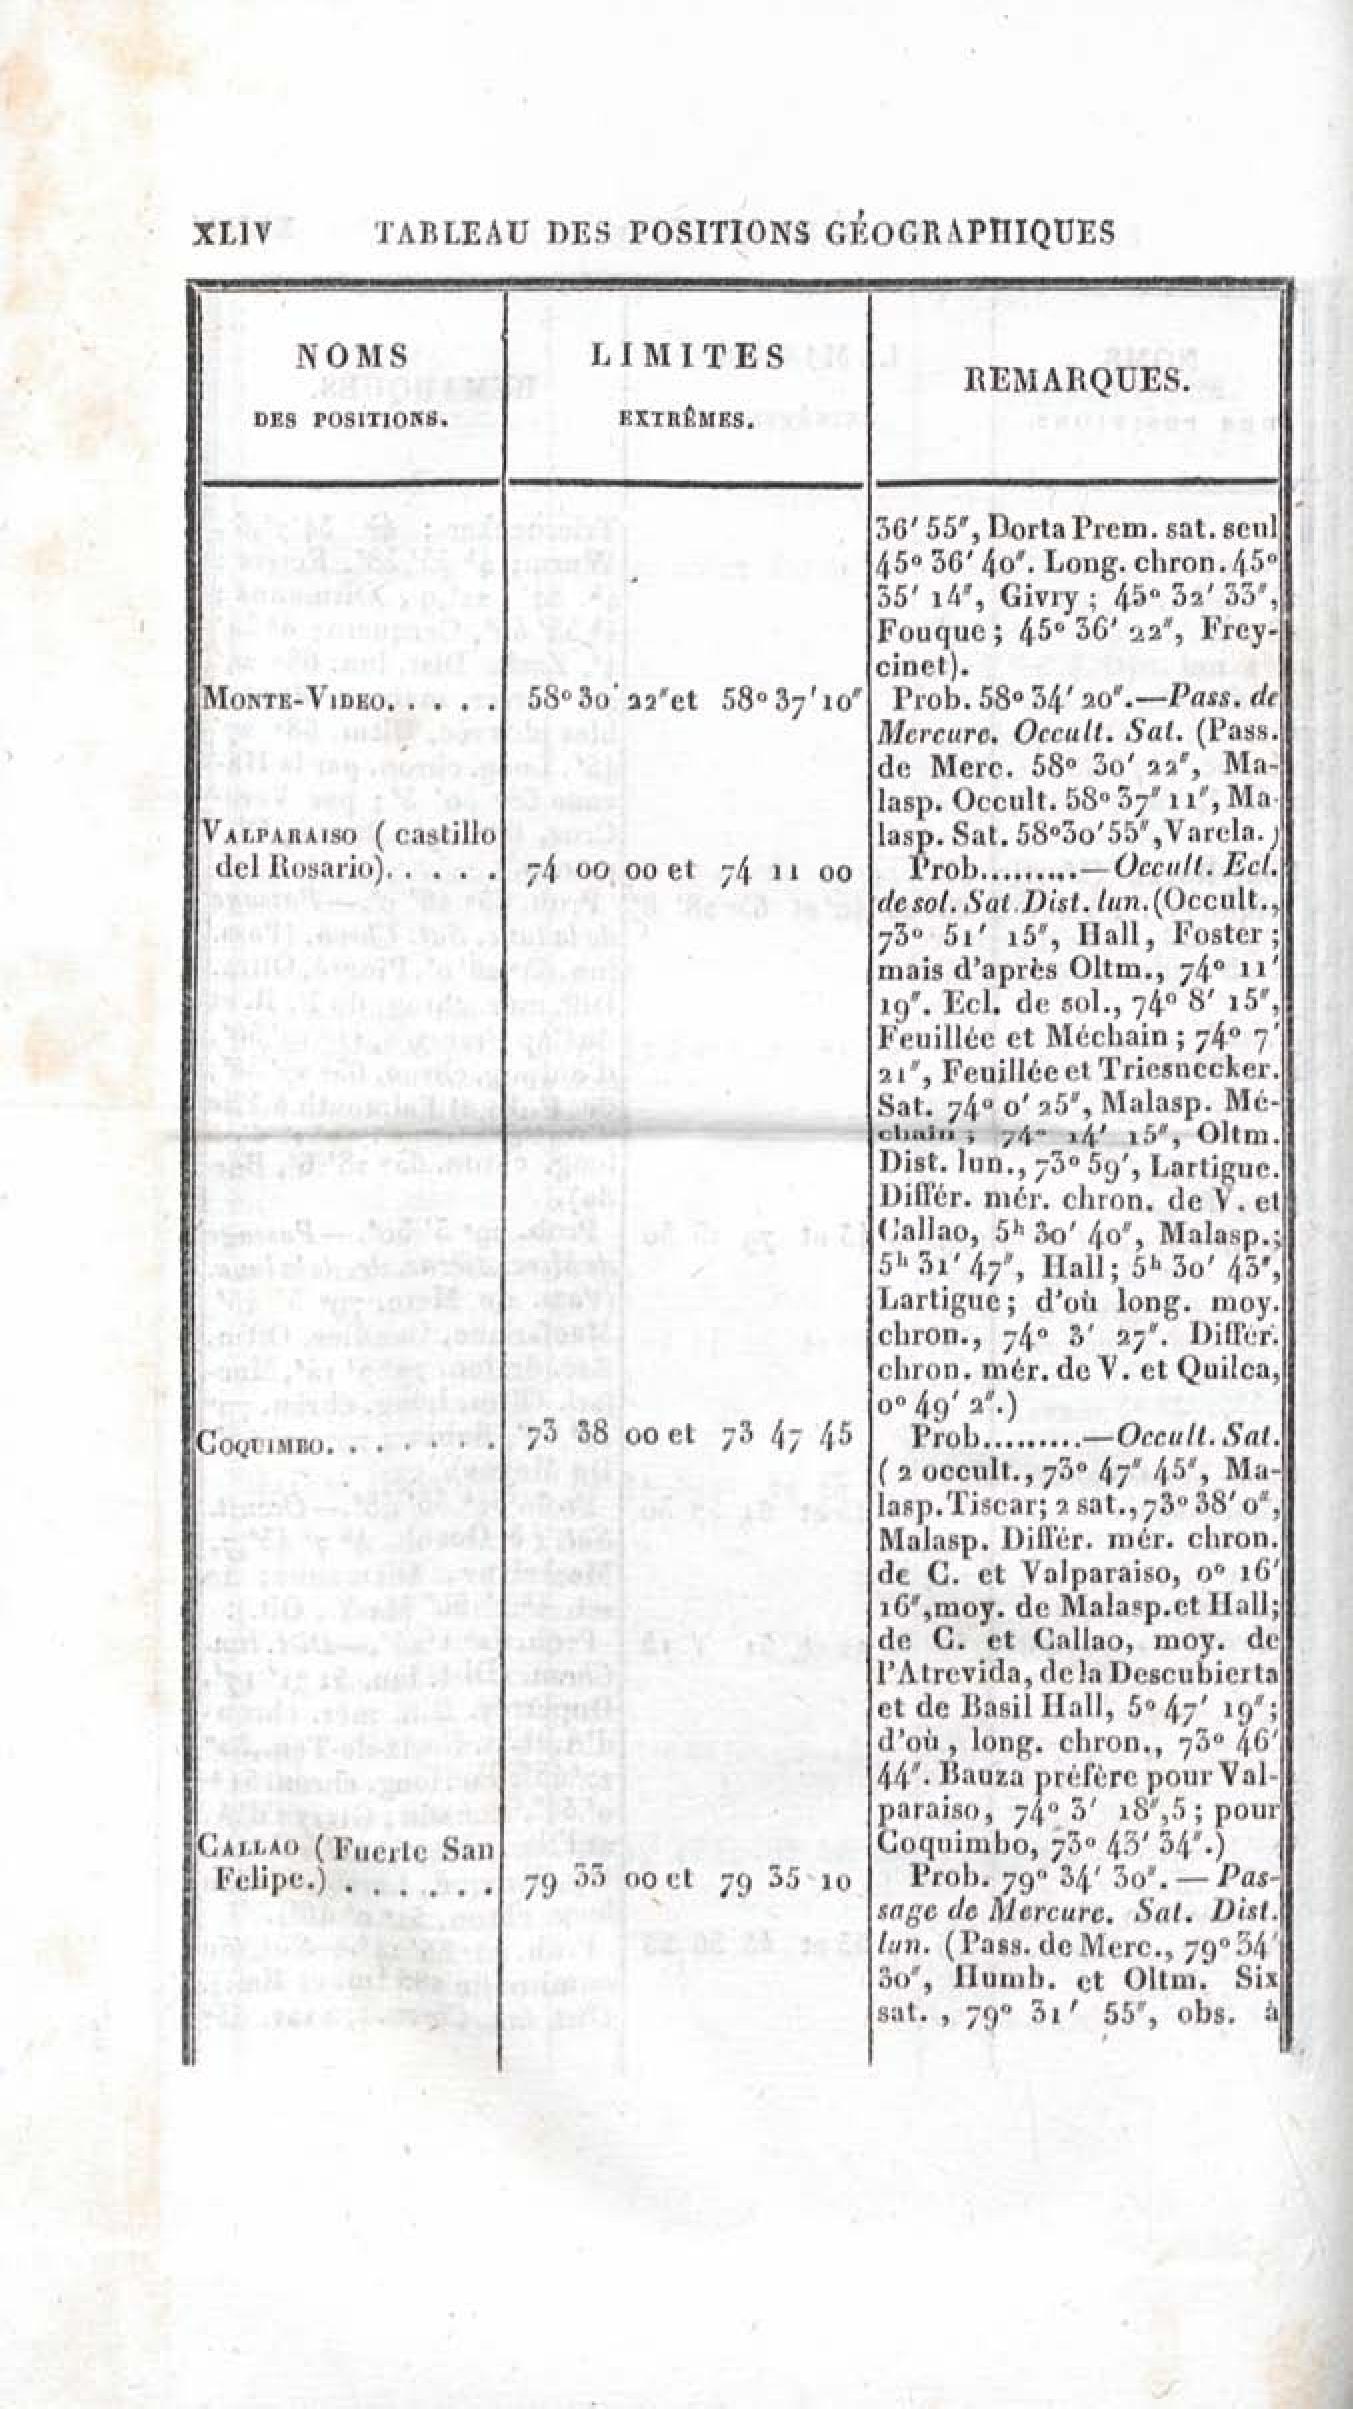 XLIV TABLEAU DES POSITIONS GÉOGRAPHIQUES
NOMS
DES POSITIONS.
LIMITES
EXTRÊMES.
REMARQUES.
36′ 55″, Dorta Prem. sat. seul
45° 36′ 40″. Long. chron. 45°
35′ 14″, Givry ; 45° 32′ 33″,
Fouque ; 45° 36′ 22″, Frey-
cinet).
MONTE-VIDEO. . . . . 58° 30′ 22″ et 58° 37′ 10″ Prob. 58° 34′ 20″.—Pass. de
Mercure. Occult. Sat. (Pass.
de Merc. 58° 30′ 22″, Ma-
lasp. Occult. 58° 37″ 11″, Ma-
VALPARAISO ( castillo lasp. Sat. 58°30′55″, Varela.)
del Rosario). . . . . . 74 00 00 et 74 11 00 Prob.........—Occult. Ecl.
de sol. Sat. Dist. lun. (Occult.,
73° 51′ 15″, Hall, Foster ;
mais d'après Oltm., 74° 11′
19″. Ecl. de sol., 74° 8′ 15″,
Feuillée et Méchain ; 74° 7′
21″, Feuillée et Triesnecker.
Sat. 74° 0′ 25″, Malasp. Mé-
chain ; 74° 14′ 15″, Oltm.
Dist. lun., 73° 59′, Lartigue.
Différ. mér. chron. de V. et
Callao, 5ʰ 30′ 40″, Malasp.;
5ʰ 31′ 47″, Hall; 5ʰ 30′ 43″,
Lartigue; d'où long. moy.
chron., 74° 3′ 27″. Différ.
chron. mér. de V. et Quilca,
0° 49′ 2″.)
COQUIMBO. . . . . . . . 73 38 00 et 73 47 45 Prob.........—Occult. Sat.
( 2 occult., 73° 47″ 45″, Ma-
lasp. Tiscar; 2 sat., 73° 38′ 0″,
Malasp. Différ. mér. chron.
de C. et Valparaiso, 0° 16′
16″, moy. de Malasp. et Hall;
de C. et Callao, moy. de
l'Atrevida, de la Descubierta
et de Basil Hall, 5° 47′ 19″;
d'où , long. chron., 73° 46′
44″. Bauza préfère pour Val-
paraiso, 74° 3′ 18″,5 ; pour
CALLAO ( Fuerte San Coquimbo, 73° 43′ 34″.)
Felipe.) . . . . . . . 79 33 00 et 79 35 10 Prob. 79° 34′ 30″. — Pas-
sage de Mercure. Sat. Dist.
lun. (Pass. de Merc., 79° 34′
30″, Humb. et Oltm. Six
sat. , 79° 31′ 55″, obs. à